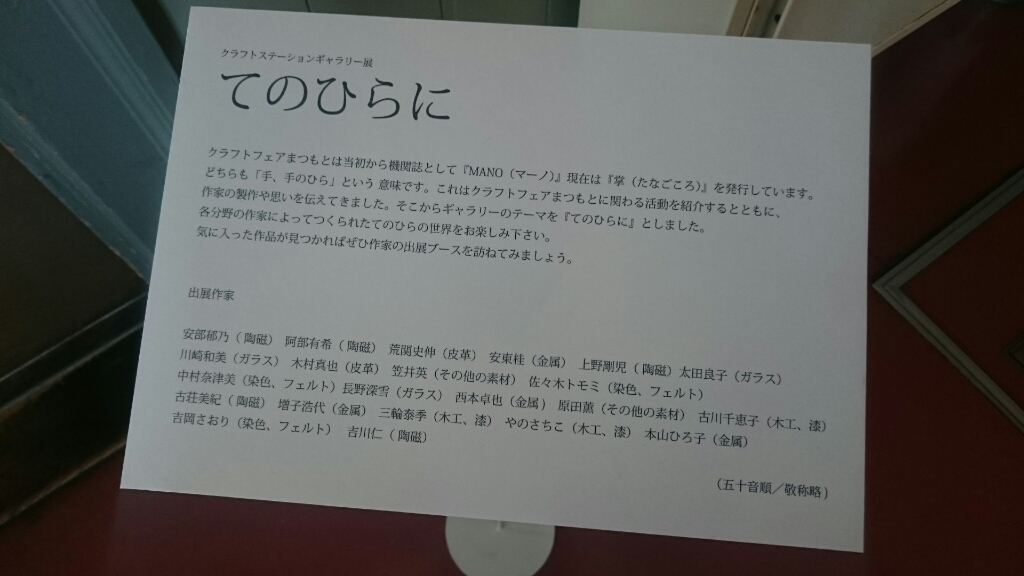 クラフトステーションギャラリー展
てのひらに
クラフトフェアまつもとは当初から機関誌として『MANO（マーノ）』現在は『掌（たなごころ）』を発行しています。
どちらも「手、手のひら」という 意味です。これはクラフトフェアまつもとに関わる活動を紹介するとともに、
作家の製作や思いを伝えてきました。そこからギャラリーのテーマを『てのひらに』としました。
各分野の作家によってつくられたてのひらの世界をお楽しみ下さい。
気に入った作品が見つかればぜひ作家の出展ブースを訪ねてみましょう。
出展作家
安部郁乃（ 陶磁） 阿部有希（ 陶磁） 荒関史伸（皮革） 安東桂（金属） 上野剛児（ 陶磁）太田良子（ガラス）
川崎和美（ガラス） 木村真也（皮革） 笠井英（その他の素材） 佐々木トモミ（染色、フェルト）
中村奈津美（染色、フェルト）長野深雪（ガラス） 西本卓也（金属 ） 原田薫（その他の素材） 古川千恵子（木工、漆）
古荘美紀（ 陶磁） 増子浩代（金属） 三輪泰季（木工、漆） やのさちこ（木工、漆） 本山ひろ子（金属）
吉岡さおり（染色、フェルト） 吉川仁（ 陶磁）
（五十音順／敬称略 )